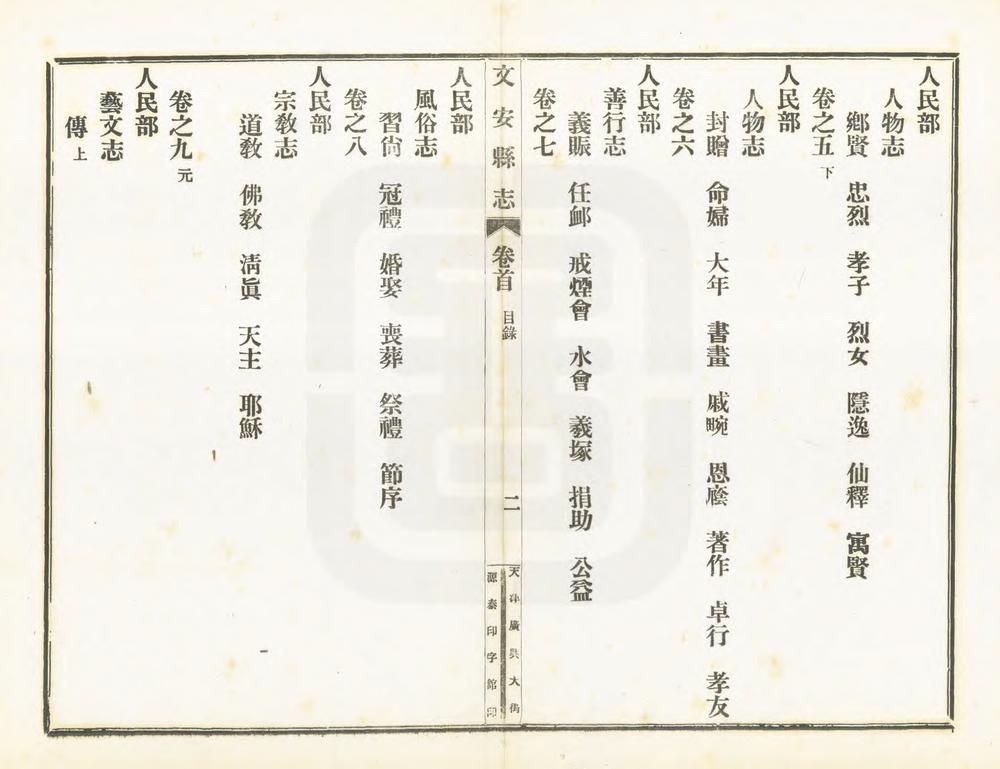 人民部
人物志
鄉賢 忠烈 孝子 烈女 隱逸 仙釋 寓賢
卷之五下
人民部
人物志
封贈 命婦 大年 書畫 戚畹 恩廕 著作 卓行 孝友
卷之六
人民部
善行志
義賑 任卹 戒煙會 水會 義塚 捐助 公益
卷之七
文安縣志 卷首 目錄 二
天津廣興大街
源泰印字館印
人民部
風俗志
習尙 冠禮 婚娶 喪葬 祭禮 節序
卷之八
人民部
宗敎志
道敎 佛敎 淸眞 天主 耶穌
卷之九元
人民部
藝文志
傳上